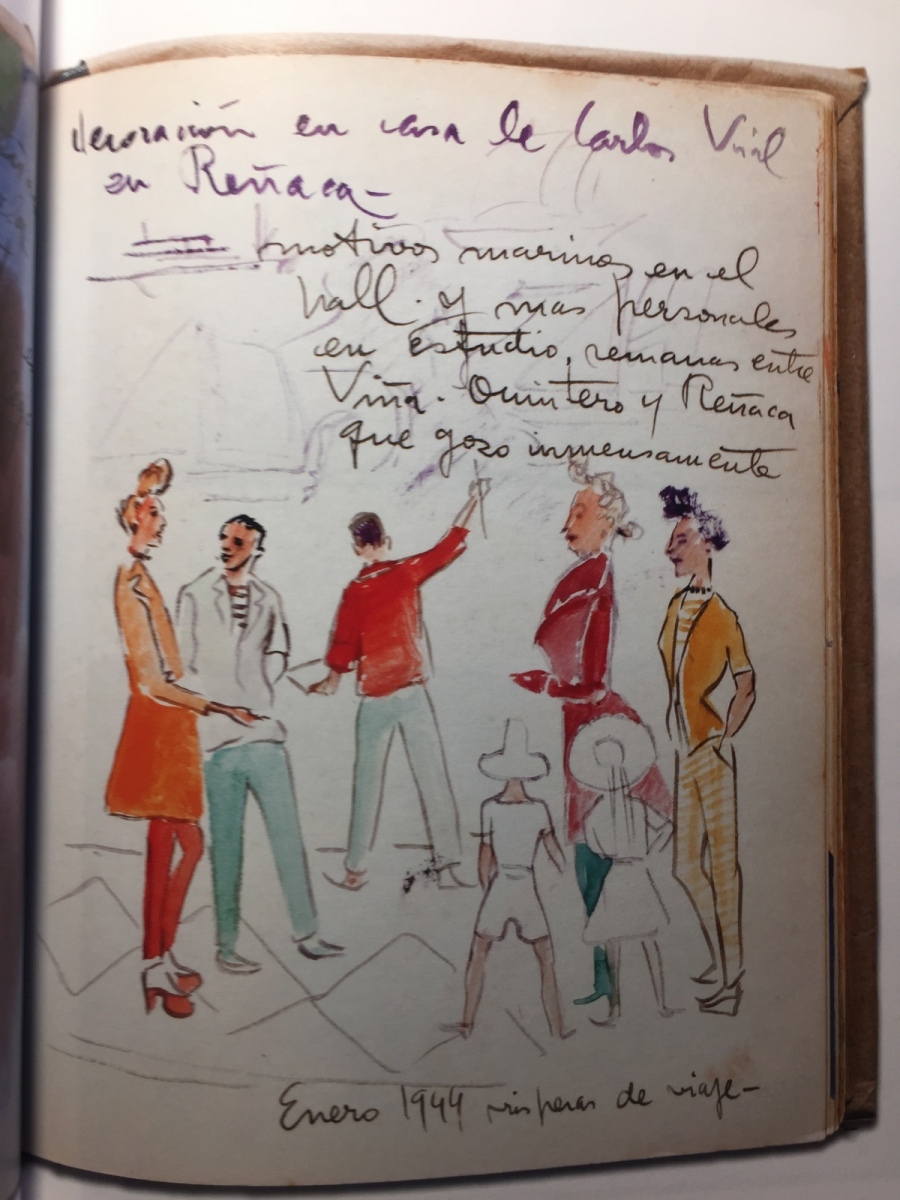 decoración en casa de Carlos Vial
en Reñaca—
motivos marinos en el
hall. y mas personales
en estudio, semanas entre
Viña. Quintero y Reñaca
que gozo inmensamente
Enero 1944 vísperas de viaje—